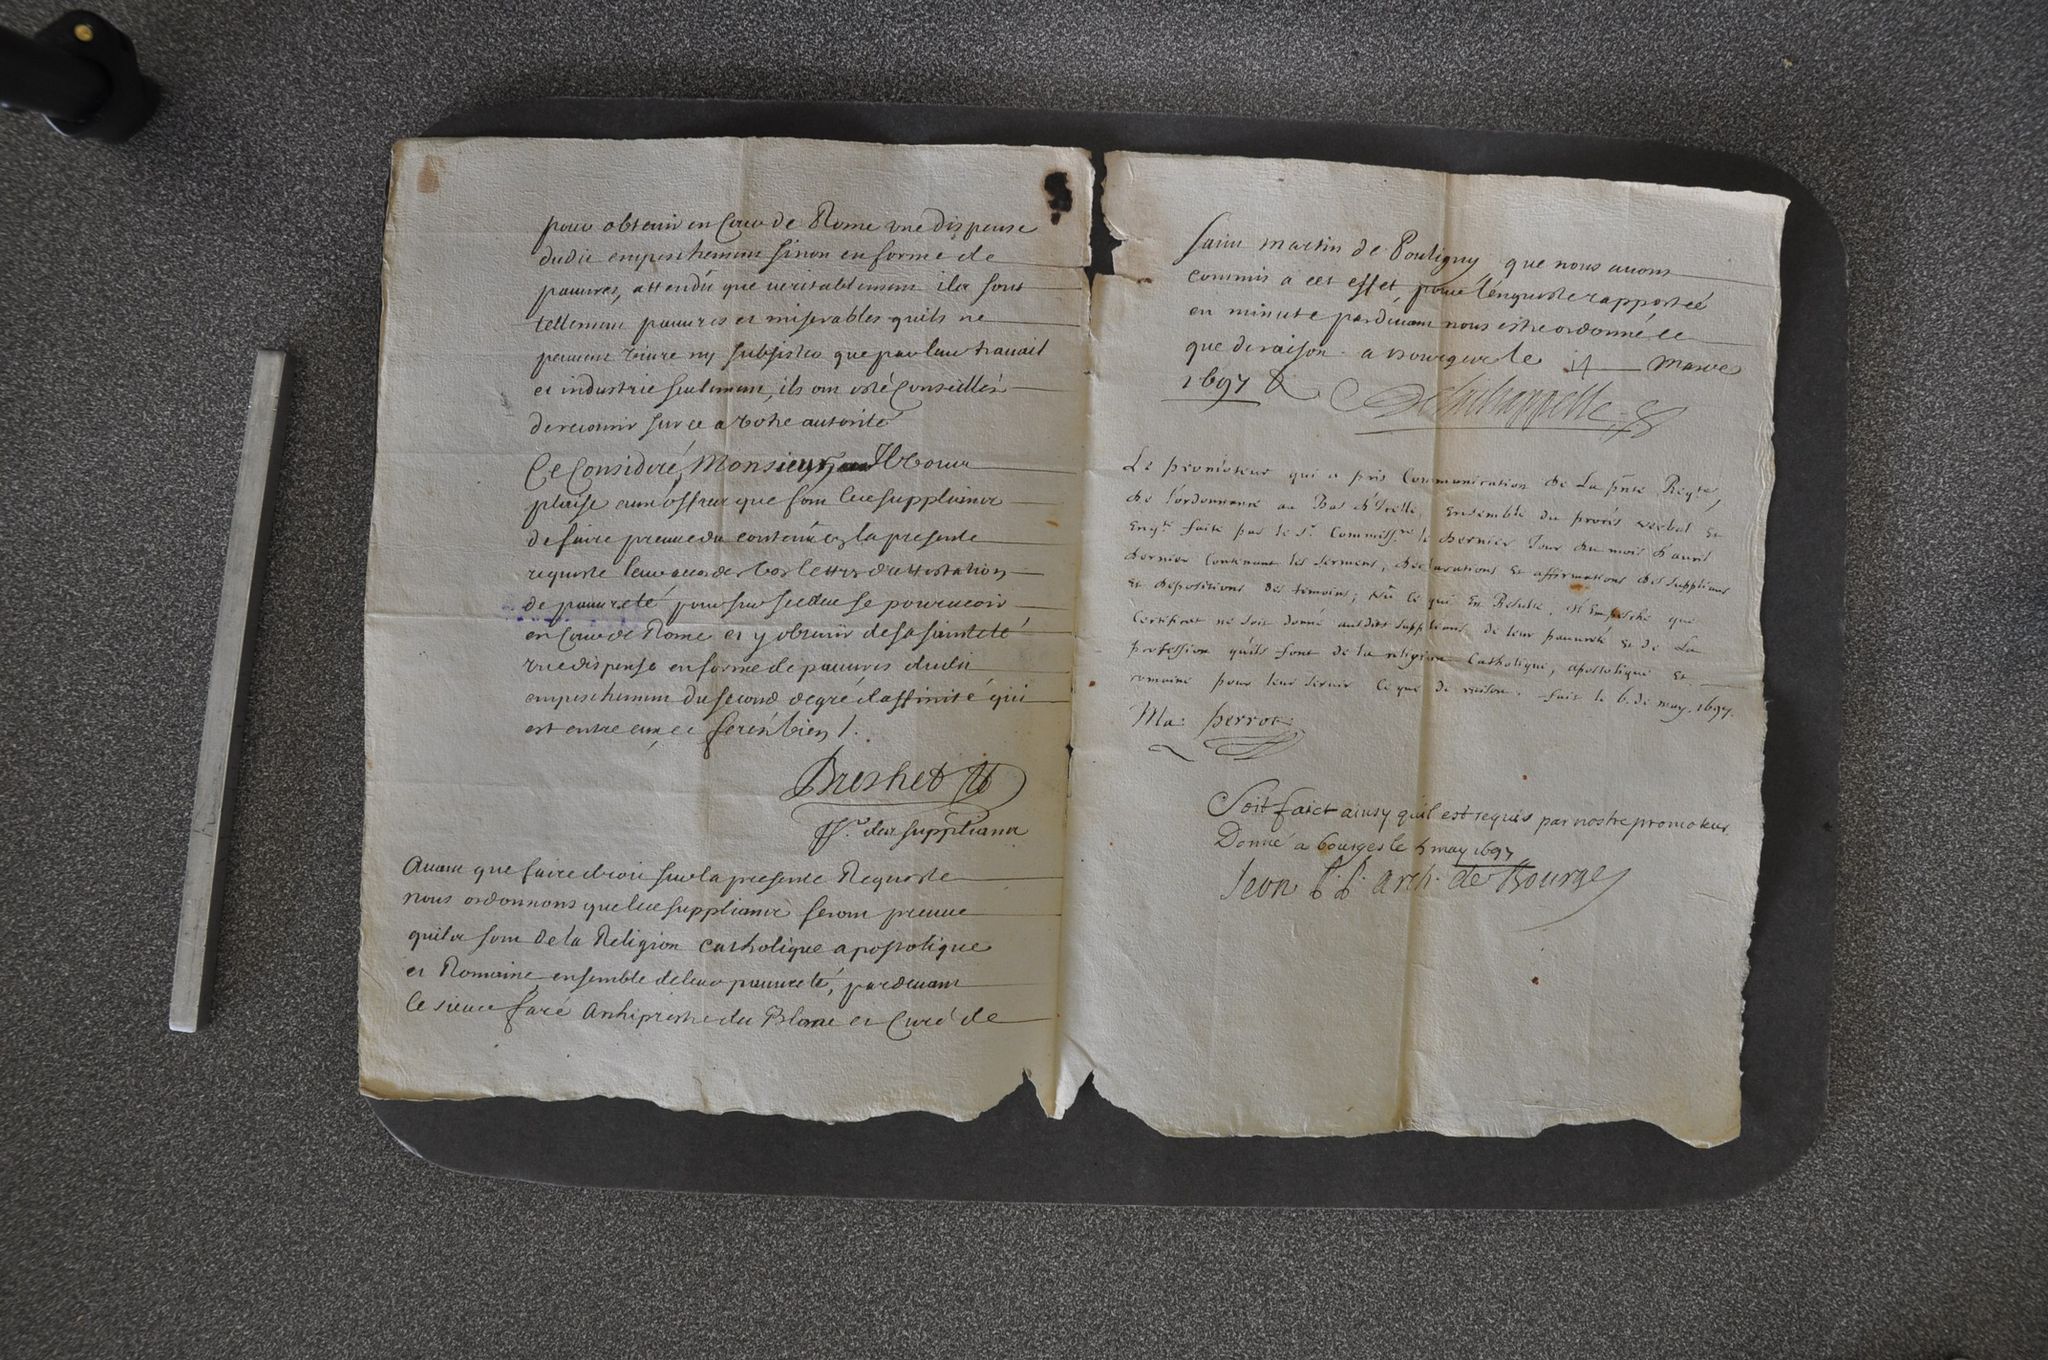 pour obtenir en Cour de Rome une dispense
dudit empeschement sinon en forme de
pauvres, attendu que veritablement ils sont
tellement pauvres et miserables quils ne
peuvent vivre ny subsister que par leur travail
et industrie seulement, ils ont esté Conseillés
de recourir sur ce a votre autorité
Ce Consideré, Monsieur, Il vous
plaise aux offres que font les supplians
de faire preuve du contenu en la presente
requeste leur vos lettres d'attestation
de pauvreté pour sur icelles se pourveoir
en Cour de Rome et y obtenir de sa sainteté
une dispense en forme de pauvres dudit
empeschement du second degré d'affinité qui
est entre eux et ferés bien /.
Breshet
Pr. des supplians
Avant que faire droit sur la presente Requeste
nous ordonnons que les supplians feront preuve
quils sont de la Religion catholique apostolique
et Romaine, ensemble de leur pauvreté, pardevant
le sieur faré Archiprestre du Blanc et Curé de
saint martin de Pouligny que nous avons
commis a cet effet pour l'enqueste rapportée
en minute pardevant nous estre ordonné ce
que de raison. a bourges le 14 Mars
1697 &
Le promoteur qui a pris Communication de La pnte Reqte,
de l'ordonnance au Bas d'Icelle, Ensemble du procés verbal Et
Enqte faite par le Sr. Commissre le dernier Jour du mois d'avril
dernier Contenant les serments, declarations Et affirmations des supplians
Et depositions des temoins; Vû Ce qui En Resulte, N'Empesche que
Certificat ne soit donné ausdits supplians de leur pauvreté Et de La
profession qu'ils font de la religion Catholique, apostolique Et
romaine pour leur servir Ce que de raison. fait le 6. de may. 1697.
Ma: perrot
Soit faict ainsy qu'il est requis par nostre promoteur.
Donné a bourges le 6 may 1697
Jeon P. P. arch. de Bourges